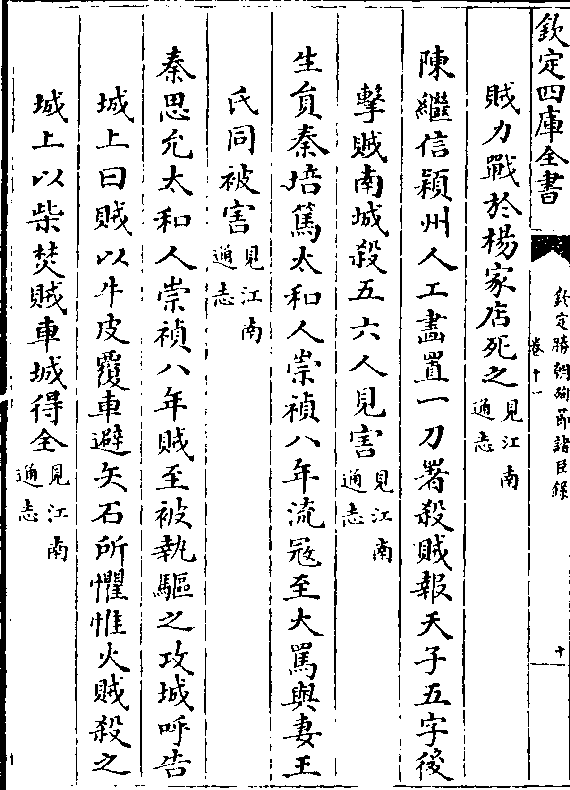 欽定四庫全書
欽定勝朝殉節諸臣錄
卷十一
十
賊力戰於楊家店死之見江南通志
陳繼信潁州人工畫置一刀署殺賊報天子五字後
擊賊南城殺五六人見害見江南通志
生員秦培篤太和人崇禎八年流宼至大罵與妻王
氏同被害見江南通志
秦思允太和人崇禎八年賊至被執驅之攻城呼告
城上曰賊以牛皮覆車避矢石所懼惟火賊殺之
城上以柴焚賊車城得全見江南通志